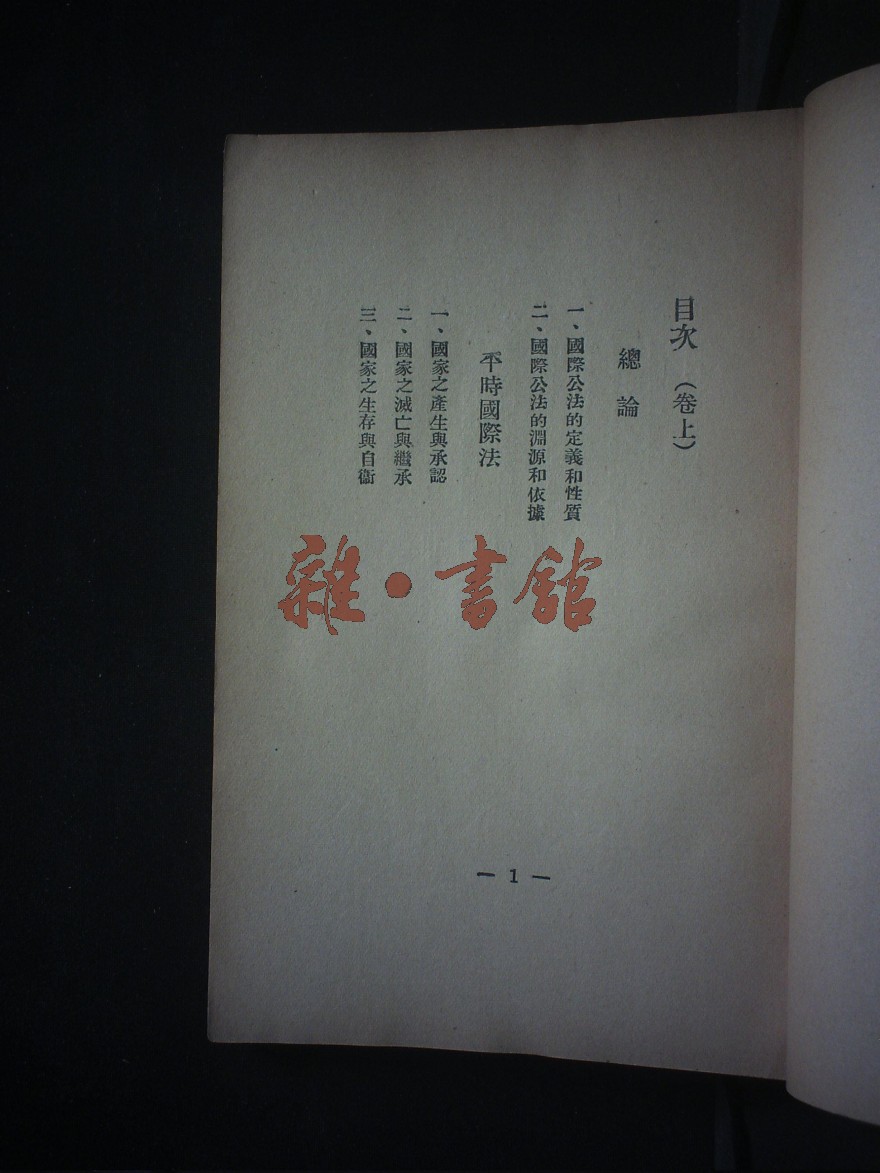 目次　（卷上）
總論
一、國際公法的定義和性質
二、國際公法的淵源和依據
平時國際法
一、國家之產生與承認
二、國家之滅亡與繼承
三、國家之生存與自衞
雜·書館
— 1 —